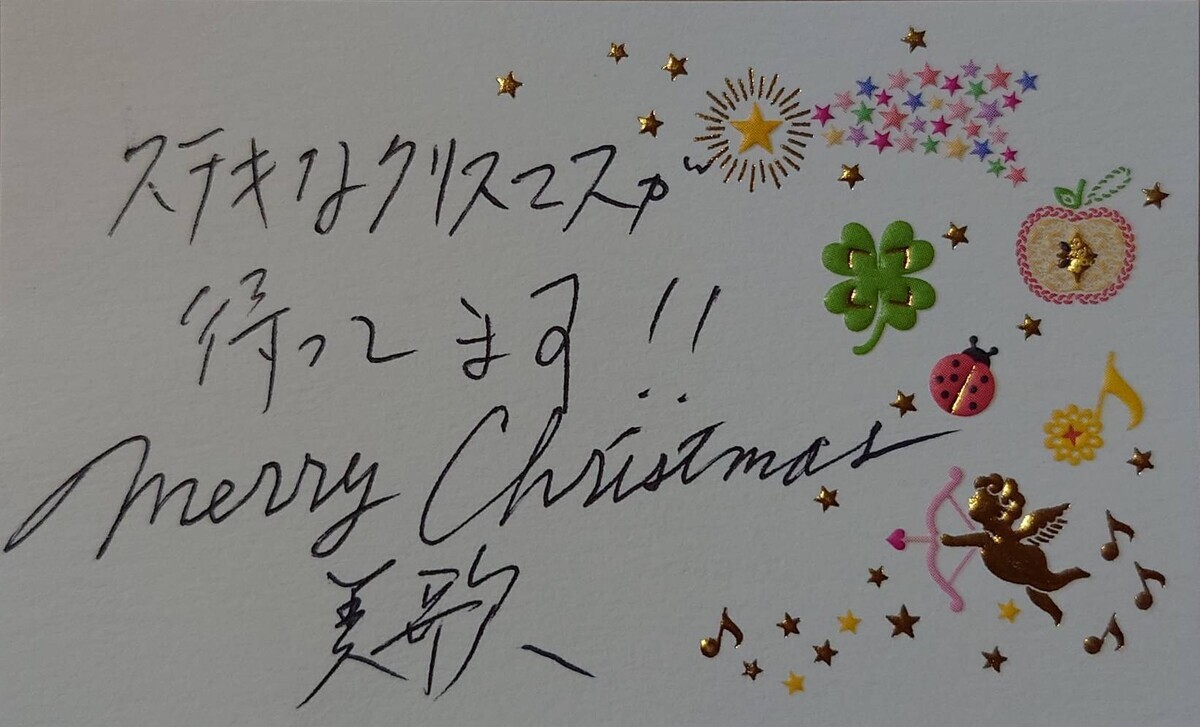 ステキなクリスマスが
待ってます!!
Merry Christmas
美歌